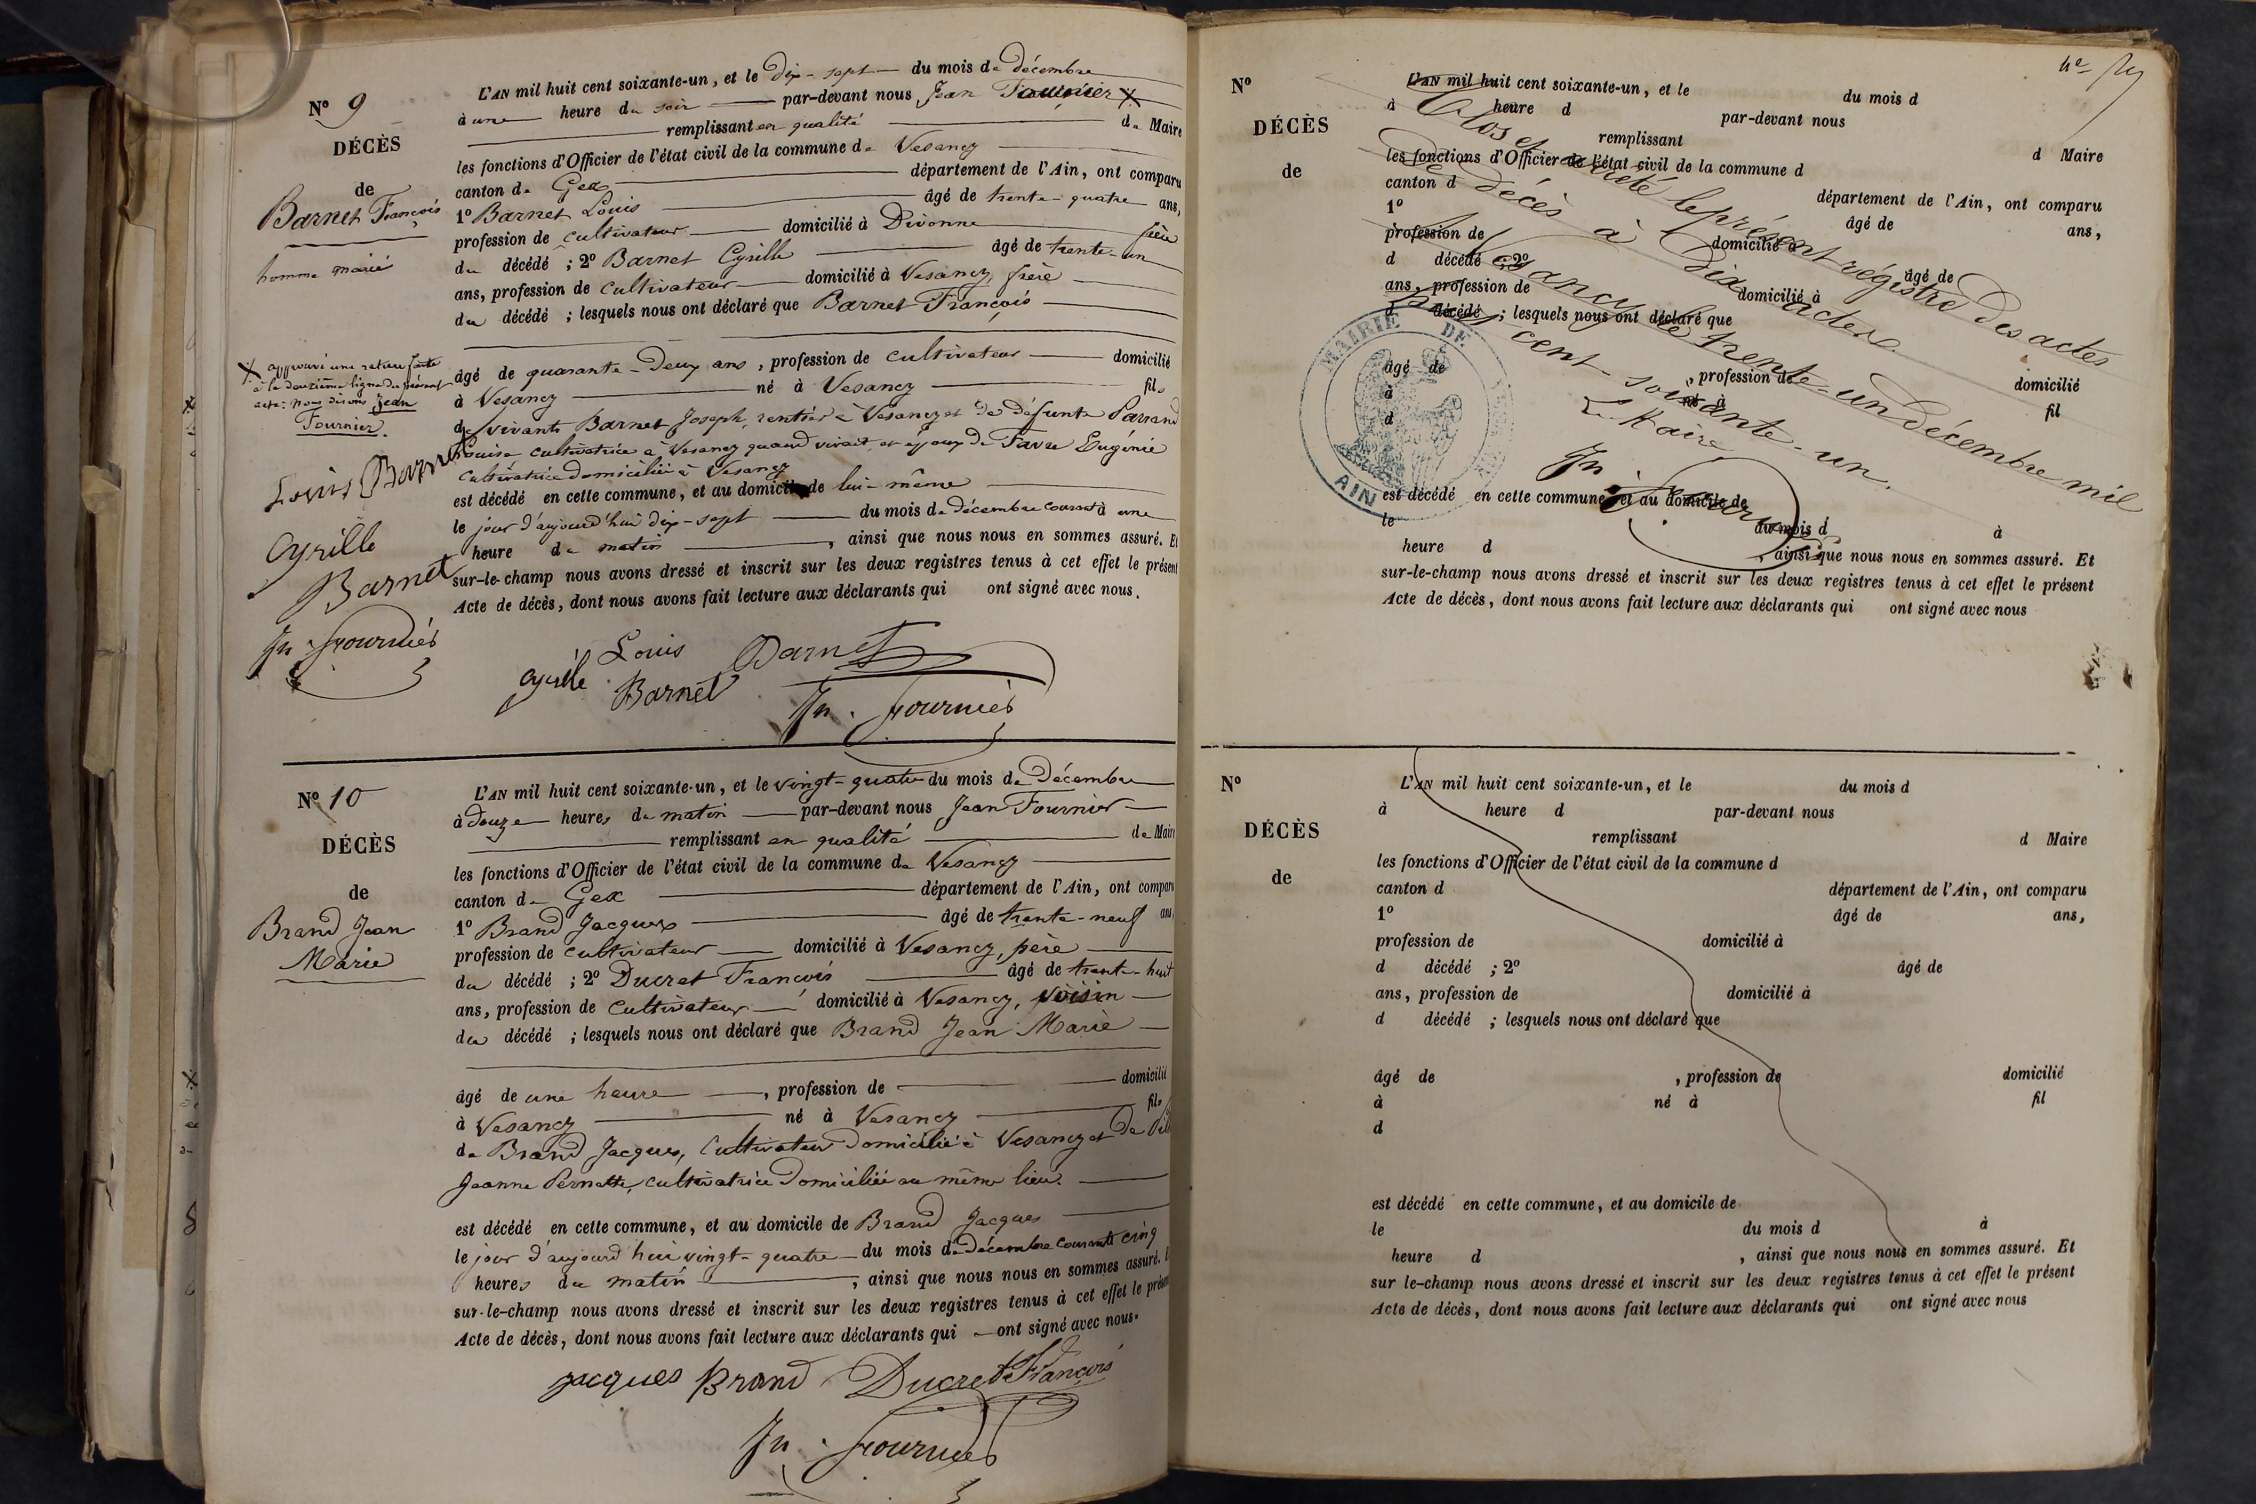 N° 9
DÉCÈS
de
Barnet François
homme marié
L'AN mil huit cent soixante-un, et le dix-sept du mois de décembre
à une heure du soir par-devant nous Jean Fournier X
remplissant en qualité de Maire
les fonctions d'Officier de l'état civil de la commune de Vesancy
canton de Gex département de l'Ain, ont comparu
1° Barnet Louis âgé de trente-quatre ans,
profession de cultivateur domicilié à Divonne frère
du décédé ; 2° Barnet Cyrille âgé de trente-un
ans, profession de cultivateur domicilié à Vesancy, frère
du décédé ; lesquels nous ont déclaré que Barnet François
âgé de quarante-deux ans, profession de cultivateur domicilié
à Vesancy né à Vesancy fils
de vivant Barnet Joseph, rentier à Vesancy et de défunte Parrand
Louise cultivatrice à Vesancy quand vivait, et époux de Favre Eugénie
cultivatrice domiciliée à Vesancy
est décédé en cette commune, et au domicile de lui-même
le jour d'aujourd'hui dix-sept du mois de décembre courant à une
heure du matin, ainsi que nous nous en sommes assuré. Et
sur-le-champ nous avons dressé et inscrit sur les deux registres tenus à cet effet le présent
Acte de décès, dont nous avons fait lecture aux déclarants qui ont signé avec nous.
X approuvé une
à la deuxième ligne du présent
acte: nous disons Jean
Fournier.
Louis Barnet
Cyrille
Barnet
Jn. Fournier
Louis Barnet
Cyrille Barnet
Jn. Fournier
N° 10
DÉCÈS
de
Brand Jean
Marie
L'AN mil huit cent soixante-un, et le vingt-quatre du mois de Décembre
à douze heures du matin par-devant nous Jean Fournier
remplissant en qualité de Maire
les fonctions d'Officier de l'état civil de la commune de Vesancy
canton de Gex département de l'Ain, ont comparu
1° Brand Jacques âgé de trente-neuf ans
profession de cultivateur domicilié à Vesancy, père
du décédé ; 2° Ducret François âgé de trente-huit
ans, profession de cultivateur domicilié à Vesancy, voisin
du décédé ; lesquels nous ont déclaré que Brand Jean Marie
âgé de une heure, profession de domicilié
à Vesancy né à Vesancy fils
de Brand Jacques, cultivateur domicilié à Vesancy et de
Jeanne Pernette, cultivatrice domiciliée au même lieu.
est décédé en cette commune, et au domicile de Brand Jacques
le jour d'aujourd'hui vingt-quatre du mois de décembre courant à cinq
heures du matin, ainsi que nous nous en sommes assuré.
sur-le-champ nous avons dressé et inscrit sur les deux registres tenus à cet effet le présent
Acte de décès, dont nous avons fait lecture aux déclarants qui ont signé avec nous.
Jacques Brand Ducret François
Jn. Fournier
N°
DÉCÈS
de
L'AN mil huit cent soixante-un, et le du mois d
à heure d par-devant nous
remplissant d Maire
les fonctions d'Officier de l'état civil de la commune d
canton d département de l'Ain, ont comparu
1° âgé de ans,
profession de domicilié à
d décédé ; 2° âgé de
ans, profession de domicilié à
d décédé ; lesquels nous ont déclaré que
âgé de , profession de domicilié
à né à fil
d
est décédé en cette commune, et au domicile de
le du mois d à
heure d , ainsi que nous nous en sommes assuré. Et
sur-le-champ nous avons dressé et inscrit sur les deux registres tenus à cet effet le présent
Acte de décès, dont nous avons fait lecture aux déclarants qui ont signé avec nous
Clos et arrêté le présent régistre des actes
de décès à dix actes.
à Vesancy le trente-un décembre mil
huit cent-soixante-un.
Le Maire
Jn. Fournier
MAIRIE DE
AIN
N°
DÉCÈS
de
L'AN mil huit cent soixante-un, et le du mois d
à heure d par-devant nous
remplissant d Maire
les fonctions d'Officier de l'état civil de la commune d
canton d département de l'Ain, ont comparu
1° âgé de ans,
profession de domicilié à
d décédé ; 2° âgé de
ans, profession de domicilié à
d décédé ; lesquels nous ont déclaré que
âgé de , profession de domicilié
à né à fil
d
est décédé en cette commune, et au domicile de
le du mois d à
heure d , ainsi que nous nous en sommes assuré. Et
sur le-champ nous avons dressé et inscrit sur les deux registres tenus à cet effet le présent
Acte de décès, dont nous avons fait lecture aux déclarants qui ont signé avec nous